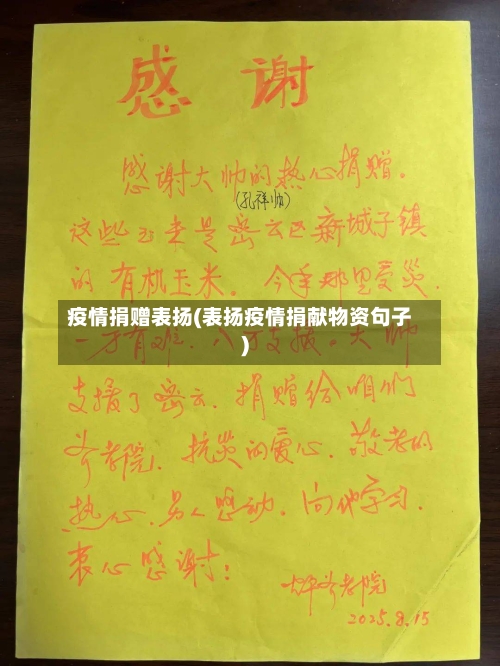 感谢
感谢大帅的热心捐赠。
(孔祥帅)
这些玉米是密云区新城子镇
的有机玉米。今年那里受灾.
疫情捐赠表扬(表扬疫情捐献物资句子
)
一方有难.八方支援。大帅
支援了密云.捐赠给咱们
养老院.抗灾的爱心.敬老的
热心.另人感动.向他学习.
衷心感谢!
养老院
2025.8.15